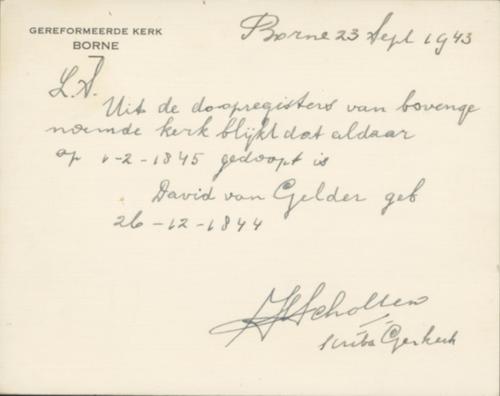 GEREFORMEERDE KERK
BORNE
Borne 23 Sept 1943
L.S.
Uit de doopregisters van bovenge
noemde kerk blijkt dat aldaar
op 1-2-1845 gedoopt is
David van Gelder geb
26-12-1844
Scholten
scriba Gerkerk